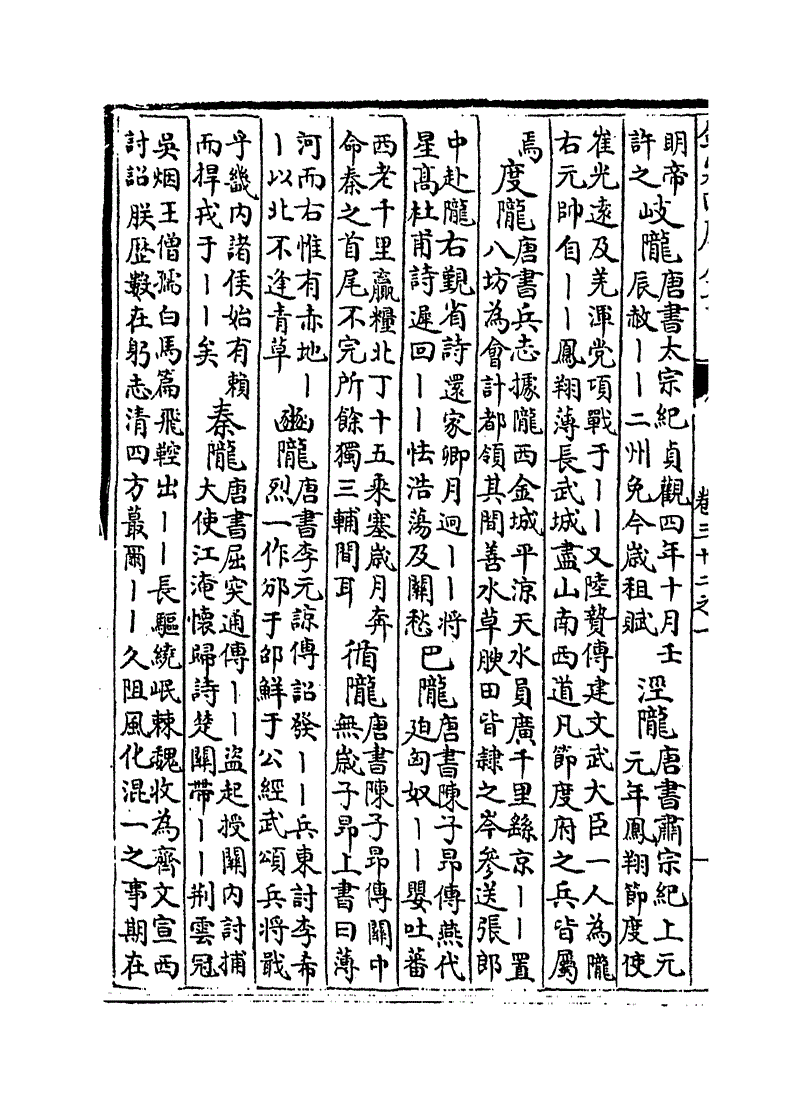 卷三十二之一
明帝許之岐隴唐書太宗紀貞觀四年十月壬辰赦——二州免今歲租賦涇隴唐書肅宗紀上元元年鳳翔節度使
崔光遠及羌渾党項戰于——又陸贄傳建文武大臣一人為隴右元帥自——鳳翔薄長武城盡山南西道凡節度府之兵皆屬
焉度隴唐書兵志據隴西金城平涼天水員廣千里繇京——置八坊為會計都領其間善水草腴田皆隷之岑參送張郎
中赴隴右覲省詩還家卿月迥——將星髙杜甫詩遲回——怯浩蕩及關愁巴隴唐書陳子昂傳燕代廹匈奴——嬰吐蕃
西老千里贏糧北丁十五乘塞歲月奔命秦之首尾不完所餘獨三輔間耳循隴唐書陳子昂傳關中無歲子昂上書曰薄
河而右惟有赤地——以北不逢青草豳隴唐書李元諒傳詔發——兵東討李希烈一作邠于邵鮮于公經武頌兵将戢
乎畿内諸侯始有賴而捍戎于——矣秦隴唐書屈突通傳——盗起授關内討捕大使江淹懷歸詩楚關帶——荆雲冠
吳烟王僧孺白馬篇飛鞚出——長驅繞岷棘魏收為齊文宣西討詔朕歴數在躬志清四方蕞爾——久阻風化混一之事期在